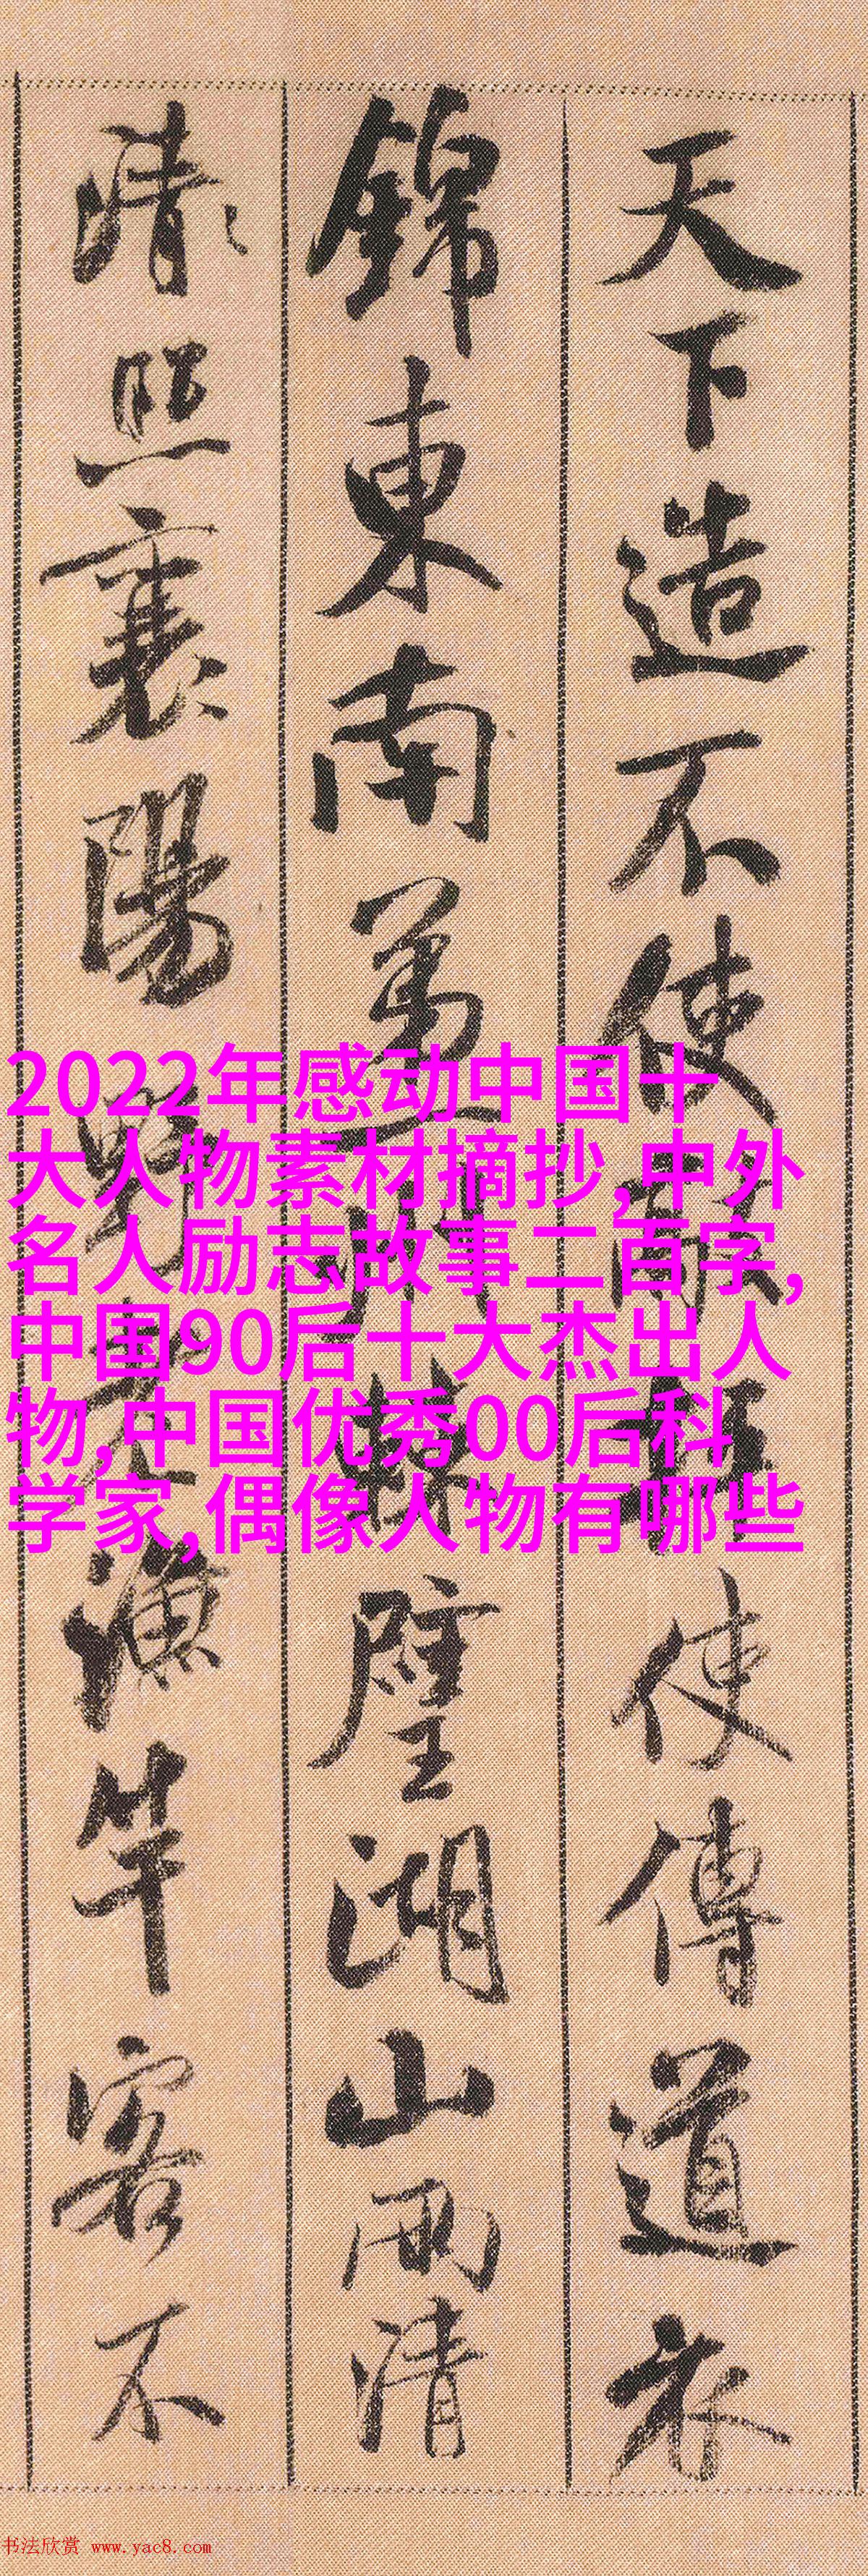 天下造不使敲枰使傳道衣
錦東南第一州棘璧湖山兩清
清照襄陽野老漁竿客不
2022年感动中国十
大人物素材摘抄,中外
名人励志故事二百字,
中国90后十大杰出人
物,中国优秀00后科
学家,偶像人物有哪些
书法欣赏 www.yac8.com